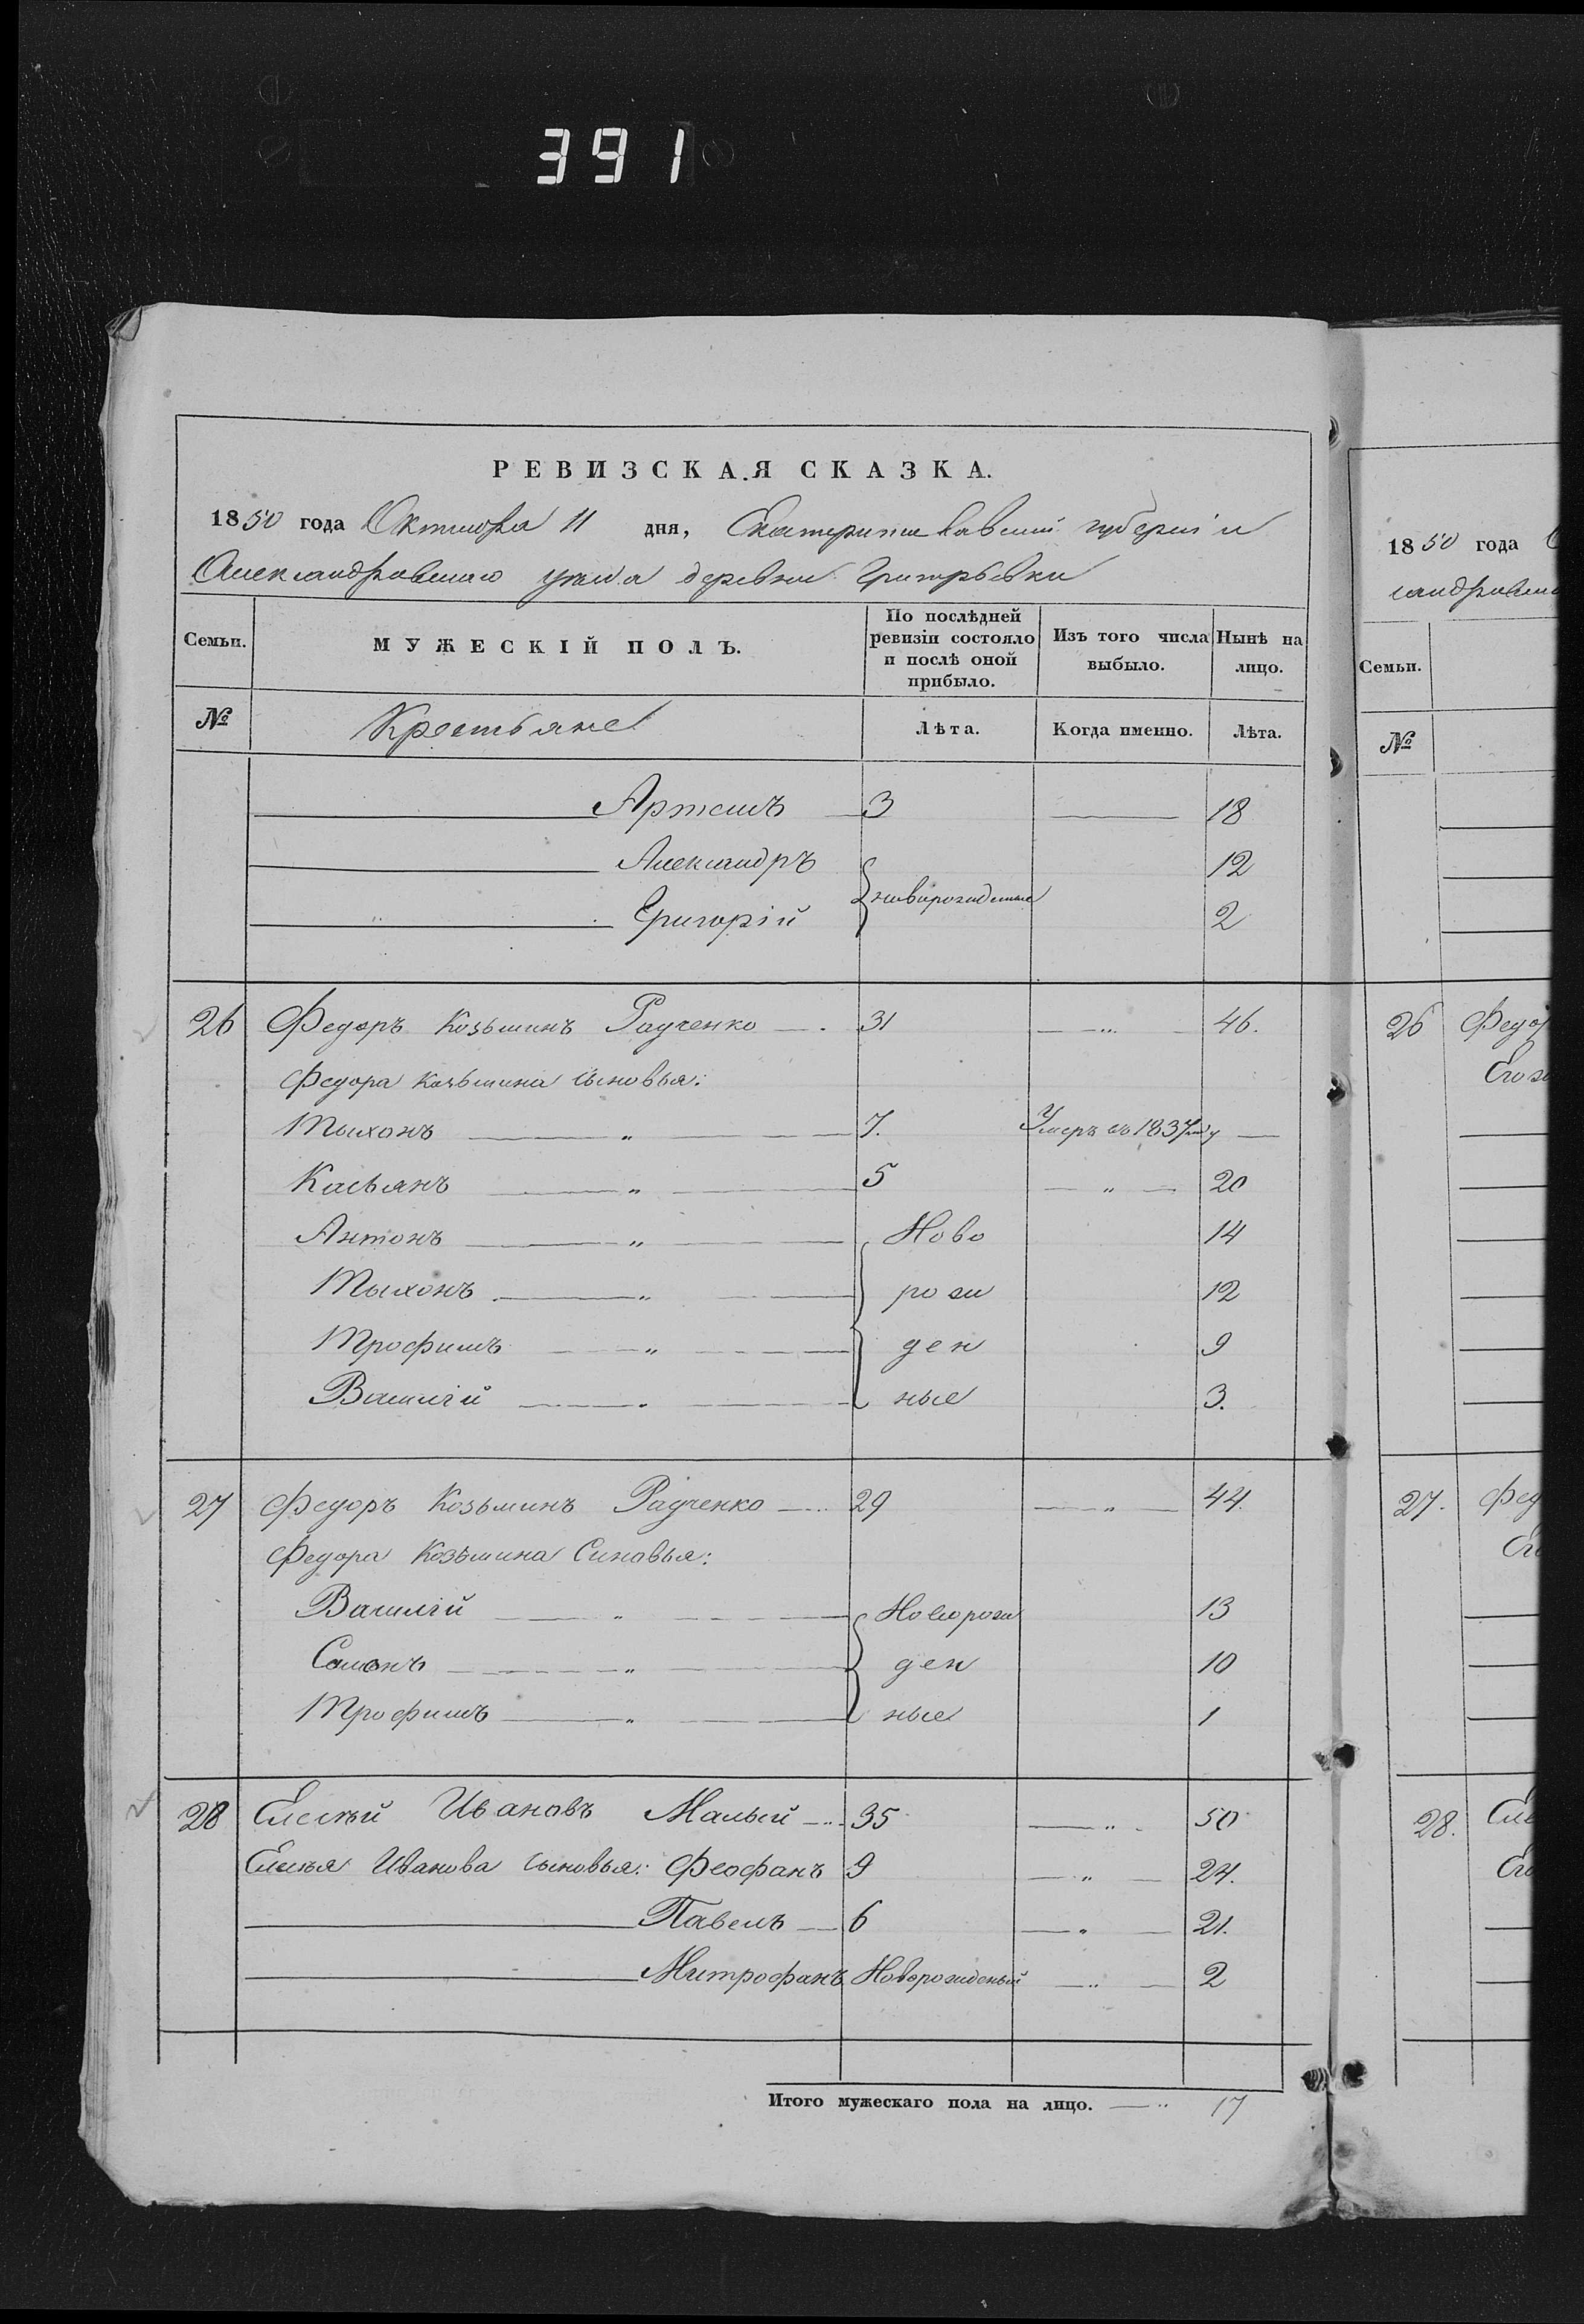 391
РЕВИЗСКАЯ СКАЗКА.
1850 года Октября 11 дня, Екатеринославской губернiи
Александровскаго уезда деревни Григорьевки
Семьи. МУЖЕСКIЙ ПОЛЪ. По послѣдней ревизiи состояло и послѣ оной прибыло. Изъ того числа выбыло. Нынѣ на лицо.
№ Крестьяне Лѣта. Когда именно. Лѣта.
Артемъ 3 18
Александръ новорожденные 12
Григорiй 2
26 Федоръ Козьминъ Радченко 31 " 46.
Федора Козьмина сыновья:
Тыхонъ " 7. Умеръ въ 1837 году
Касьянъ " 5 " 20
Антонъ " Ново 14
Тыхонъ " рож 12
Трофимъ " ден 9
Василiй " ные 3.
27 Федоръ Козьминъ Радченко 29 " 44.
Федора Козьмина Синовья:
Василiй " Новорож 13
Самонъ " ден 10
Трофимъ " ные 1
28 Елисѣй Ивановъ Малый 35 " 50
Елисѣя Иванова сыновья: Феофанъ 9 " 24.
Павелъ 6 " 21.
Митрофанъ Новорожденый " 2
Итого мужескаго пола на лицо. " 17
1850 года
Семьи.
№
26
27.
28.